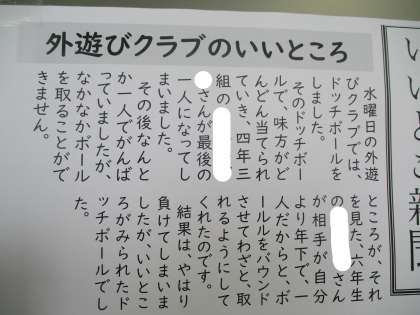 外遊びクラブのいいところ
水曜日の外遊
びクラブでは、
ドッチボールを
しました。
そのドッチボー
ルで、味方がど
んどん当てられ
ていき、四年三
組の
さんが最後の
一人になってし
まいました。
その後なんと
か一人でがんば
っていましたが、
なかなかボール
を取ることがで
きません。
ところが、それ
を見た、六年生
の さん
が相手が自分
より年下で、一
人だからと、ボ
ールをバウンド
させてわざと、取
れるようにして
くれたのです。
結果は、やはり
負けてしまいま
したが、いいとこ
ろがみられたド
ッチボールでし
た。